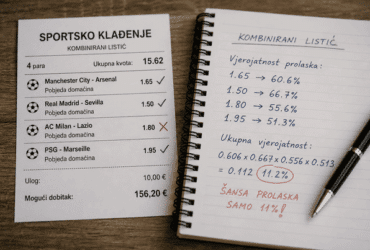 SPORTSKO KLAĐENJE
KOMBINIRANI LISTIĆ
4 para Ukupna kvota: 15.62
Manchester City - Arsenal 1.65
Pobjeda domaćina
Real Madrid - Sevilla 1.50
Pobjeda domaćina
AC Milan - Lazio 1.80
Pobjeda domaćina
PSG - Marseille 1.95
Pobjeda domaćina
Ulog: 10,00 €
Mogući dobitak: 156,20 €
KOMBINIRANI LISTIĆ
Vjerojatnost prolaska:
1.65 → 60.6%
1.50 → 66.7%
1.80 → 55.6%
1.95 → 51.3%
Ukupna vjerojatnost:
0.606 x 0.667 x 0.556 x 0.513
= 0.112 11.2%
ŠANSA PROLASKA
SAMO 11%!